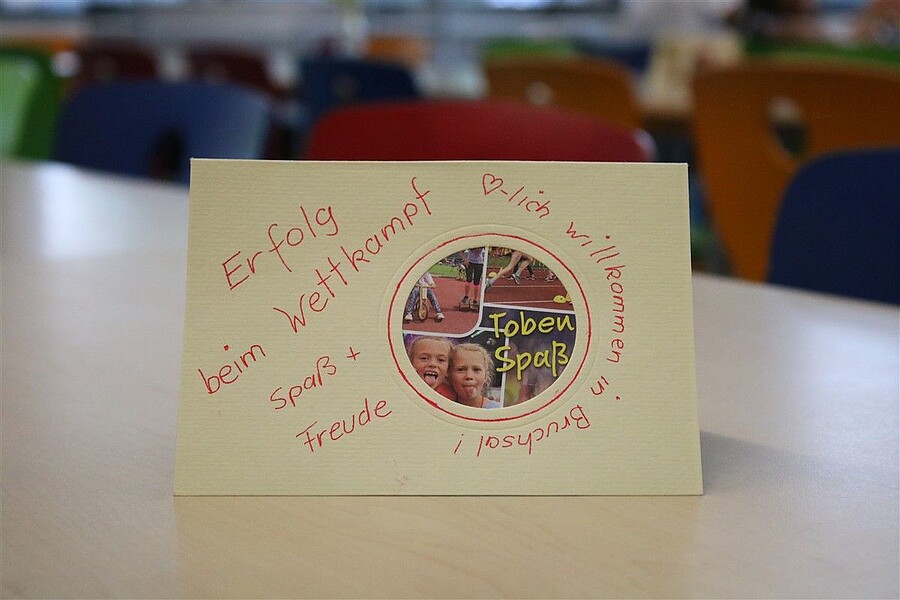 Erfolg
beim Wettkampf
Spaß +
Freude
♡-lich willkommen in Bruchsal!
Toben
Spaß